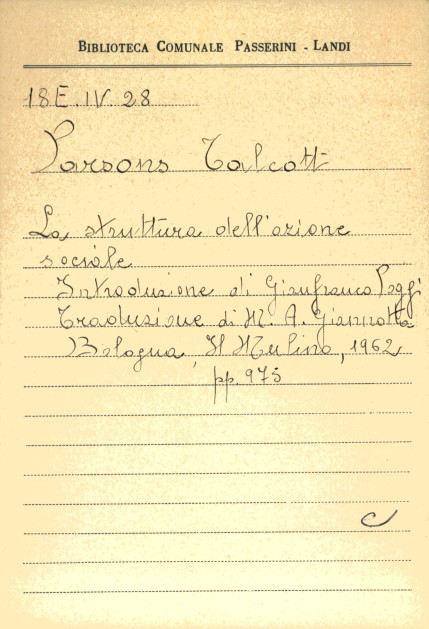 BIBLIOTECA COMUNALE PASSERINI - LANDI
18E.IV.28
Parsons Talcott
La struttura dell'azione
sociale
Introduzione di Gianfranco Poggi
Traduzione di M. A. Giannotta
Bologna, Il Mulino, 1962
pp. 975
C